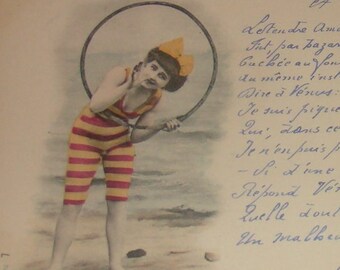 Le tendre Amo
Fut, par hazar
Cachée au fon
au même s'est
Dire à Vénus:
Je suis piqué
Qui, dans ce
Je n'en puis p
– Si d'une
Répond Vé
Quelle dou
Un malheu